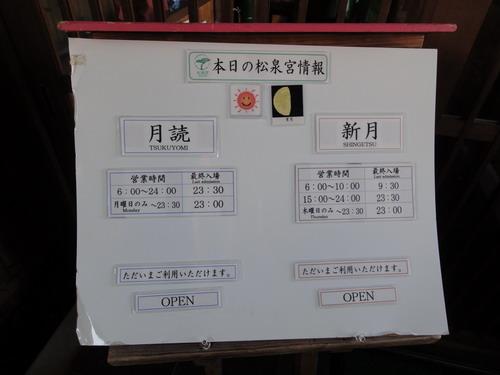 本日の松泉宮情報
月読
TSUKUYOMI
営業時間 最終入場
Last admission
6:00〜24:00 23:30
月曜日のみ 〜23:30 23:00
Monday
新月
SHINGETSU
営業時間 最終入場
Last admission
6:00〜10:00 9:30
15:00〜24:00 23:30
木曜日のみ 〜23:30 23:00
Thursday
ただいまご利用いただけます。
OPEN
ただいまご利用いただけます。
OPEN